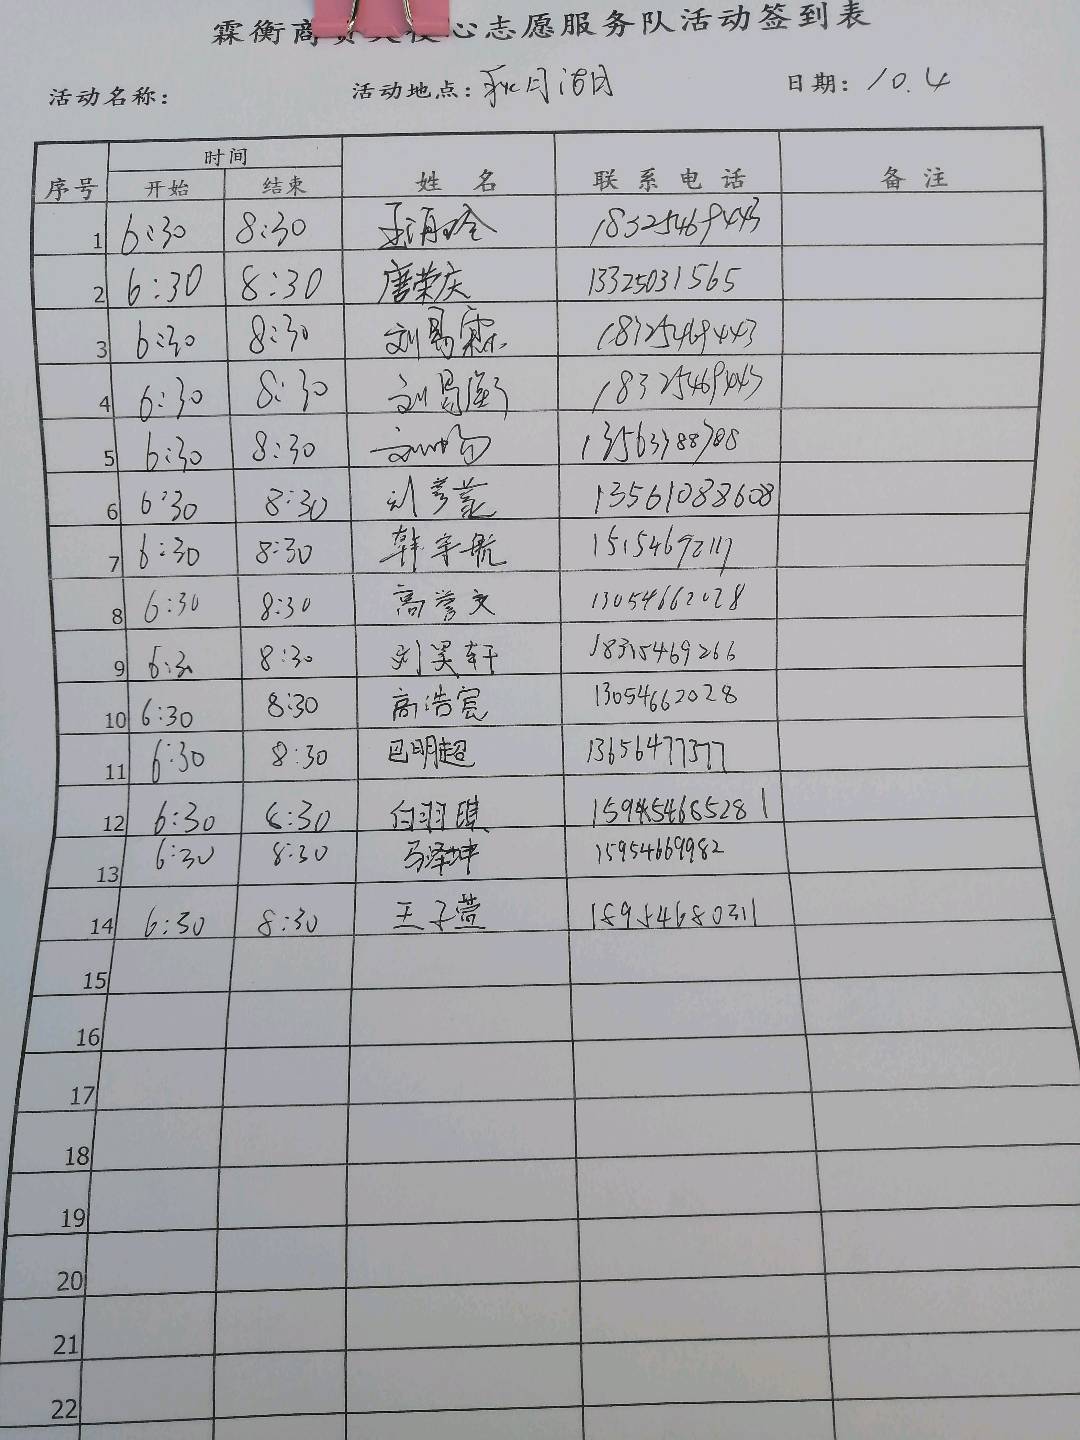 霖衡商贸 心志愿服务队活动签到表
活动名称： 活动地点：秋月湖 日期：10.4
序号 时间 姓 名 联系电话 备注
开始 结束
1 6:30 8:30 18325469443
2 6:30 8:30 唐荣庆 13325031565
3 6:30 8:30 刘易霖 18325469443
4 6:30 8:30 刘易衡 18325469443
5 6:30 8:30 13563788708
6 6:30 8:30 13561088608
7 6:30 8:30 韩宇航 15154692117
8 6:30 8:30 高誉文 13054662028
9 6:30 8:30 刘昊轩 18315469266
10 6:30 8:30 高浩宸 13054662028
11 6:30 8:30 巴明超 13656477377
12 6:30 8:30 白羽琪
13 6:30 8:30 马泽坤 15954669982
14 6:30 8:30 王子萱 18954680311
15
16
17
18
19
20
21
22